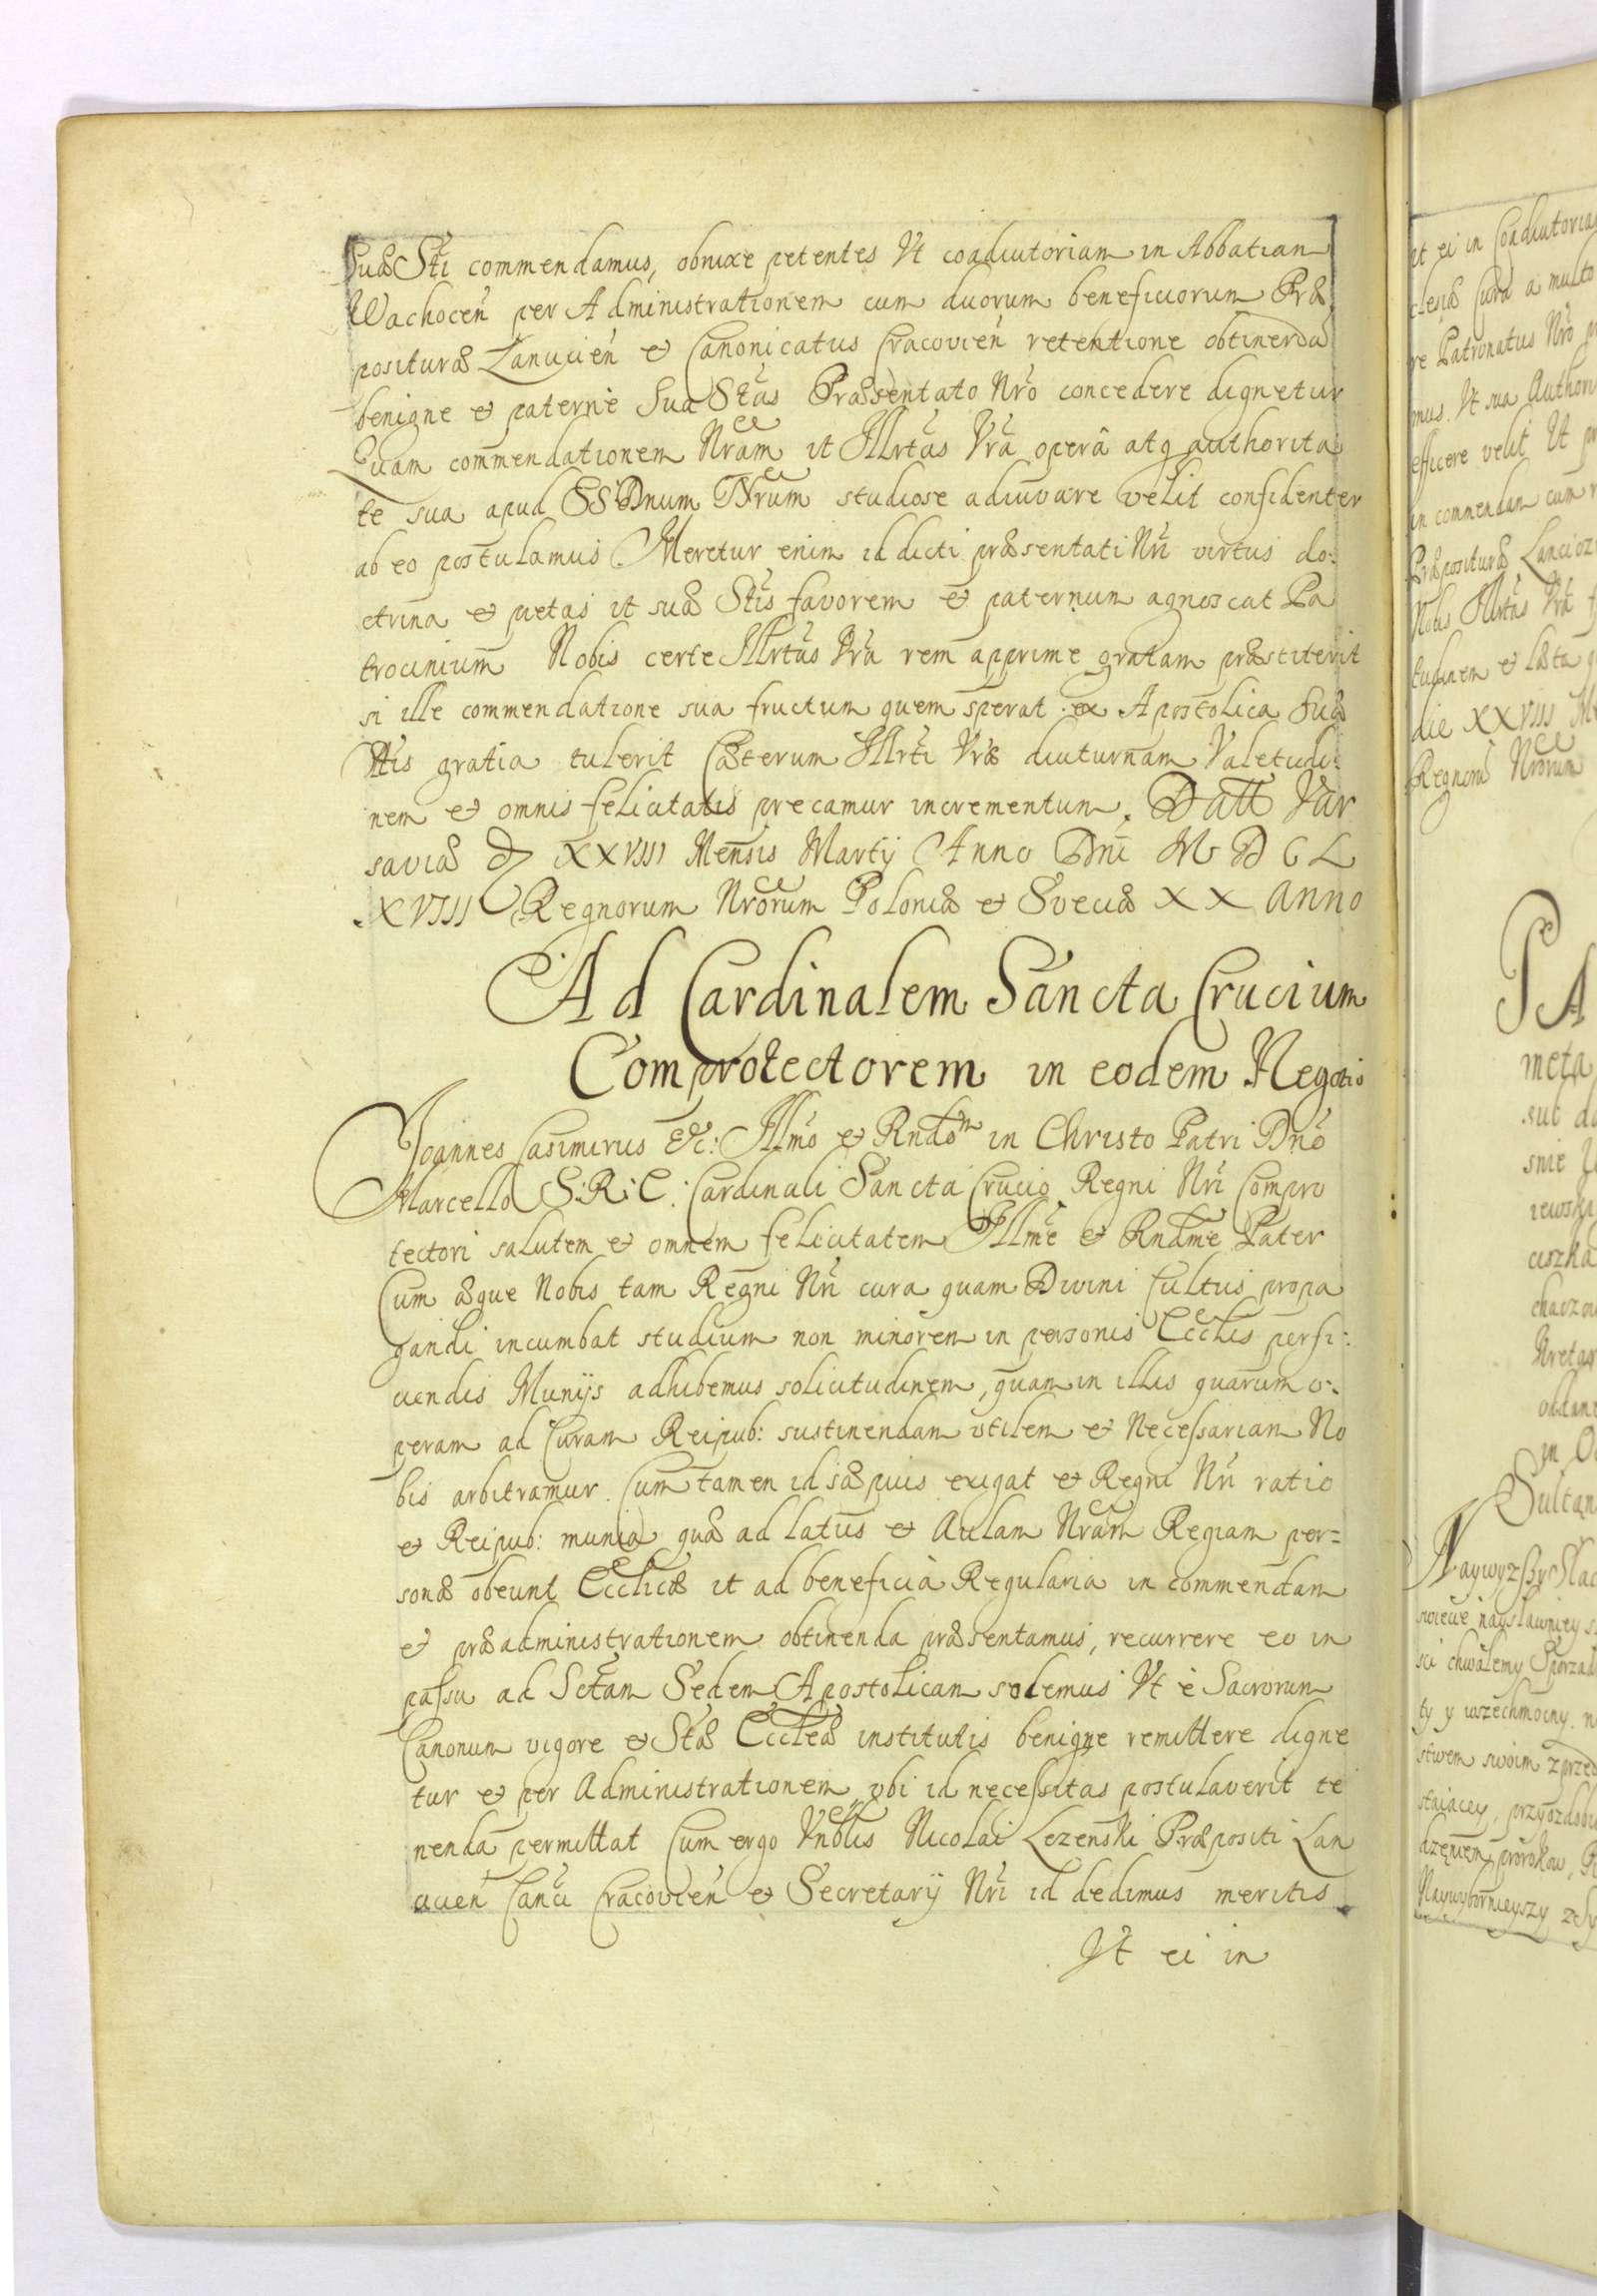 Suæ Sti commendamus, obnixe petentes Vt coadiutoriam in Abbatiam
Wachocen̄ per Administrationem cum duorum beneficiorum Præ
posituræ Lanucien̄ et Canonicatus Cracovien̄ retentione obtinenda
benigne et paterne Sua Stas Præsentato Nro concedere dignetur
Quam commendationem Nram ut Illrtas Vra operâ atq authorita
te sua apud SS Dnum Nrum studiose adiuvare velit confidenter
ab eo postulamus. Meretur enim id dicti præsentati Nri virtus do:
ctrina et pietas ut suæ Stis favorem et paternum agnoscat Pa
trocinium Nobis certe Illrtas Vra rem apprime gratam præstiterit
si ille commendatione sua fructum quem sperat ex Apostolica Suæ
Stis gratia tulerit Cæterum Illrti Vræ diuturnam Valetudi:
nem et omnis felicitatis precamur incrementum. Datt Var
saviæ D XXVIII Mensis Martij Anno Dni M D C L
XVIII Regnorum Nrorum Poloniæ et Sveciæ XX Anno
Ad Cardinalem Sancta Crucium
Comprotectorem in eodem Negotio
Joannes Casimirus etc: Illmo et Rndom in Christo Patri Dno
Marcello S: R: C: Cardinali Sancta Crucio Regni Nri Compro
tectori salutem et omnem felicitatem Illme et Rndme Pater
Cum æque Nobis tam Regni Nri cura quam Divini Cultus propa
gandi incumbat studium non minorem in personis Ecclis perfi:
ciendis Munijs adhibemus solicitudinem, quam in illis quarum o:
peram ad Curam Reipub: sustinendam vtilem et Necessariam No
bis arbitramur. Cum tamen id sæpius exigat et Regni Nri ratio
et Reipub: munia quæ ad latus et Aulam Nram Regiam per=
sonæ obeunt Ecclicæ ut ad beneficia Regularia in commendam
et præadministrationem obtinenda præsentamus, recurrere eo in
passu ad Sctam Sedem Apostolicam solemus Vt è Sacrorum
Canonum vigore et Stæ Eccleæ institutis benigne remittere digne
tur et per Administrationem vbi id necessitas postulaverit te
nenda permittat Cum ergo Vnblis Nicolai Lezenski Præpositi Lan
cicen̄ Canci Cracovien̄ et Secretarij Nri id dedimus meritis
Vt ei in